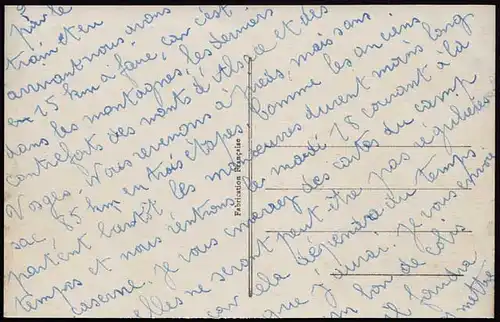 par le
train et en
arrivant nous avons
en 15 km à faire, car c'est
dans les montagnes, les derniers
contreforts des monts d'Alsace et des
Vosges. Nous revenons à pieds, mais sans
sac, 85 km en trois étapes. Comme les anciens
partent bientôt les manœuvres durent moins long
temps et nous rentrons le mardi 18 courant à la
caserne. Je vous enverrez des cartes du camp
elles ne seront peut-être pas régulières
car cela dépendra du temps
que j'aurai. Je vous envoi
un bon de colis
il faudra
mettre
Fabrication Française